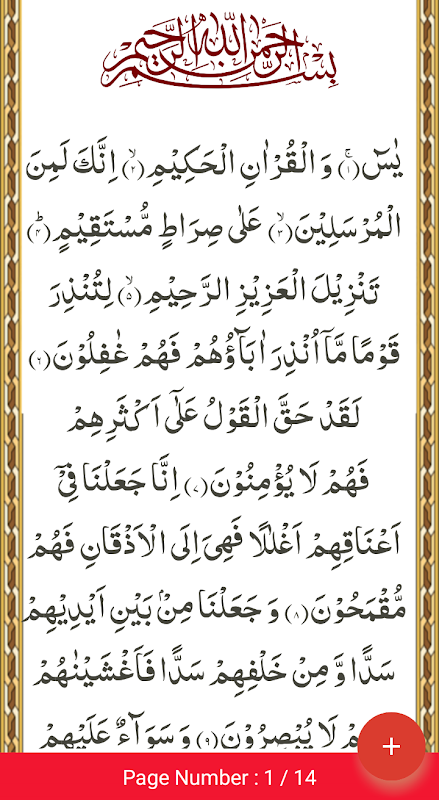 بِسْمِ اللهِ الرَّحْمٰنِ الرَّحِيْمِ
يٰسٓ ﴿١﴾ وَ الْقُرْاٰنِ الْحَكِيْمِ ﴿٢﴾ اِنَّكَ لَمِنَ
الْمُرْسَلِيْنَ ﴿٣﴾ عَلٰى صِرَاطٍ مُّسْتَقِيْمٍ ﴿٤﴾
تَنْزِيْلَ الْعَزِيْزِ الرَّحِيْمِ ﴿٥﴾ لِتُنْذِرَ
قَوْمًا مَّاۤ اُنْذِرَ اٰبَآؤُهُمْ فَهُمْ غٰفِلُوْنَ ﴿٦﴾
لَقَدْ حَقَّ الْقَوْلُ عَلٰۤى اَكْثَرِهِمْ
فَهُمْ لَا يُؤْمِنُوْنَ ﴿٧﴾ اِنَّا جَعَلْنَا فِيْۤ
اَعْنَاقِهِمْ اَغْلٰلًا فَهِىَ اِلَى الْاَذْقَانِ فَهُمْ
مُّقْمَحُوْنَ ﴿٨﴾ وَ جَعَلْنَا مِنْۢ بَيْنِ اَيْدِيْهِمْ
سَدًّا وَّ مِنْ خَلْفِهِمْ سَدًّا فَاَغْشَيْنٰهُمْ
لَا يُبْصِرُوْنَ ﴿٩﴾ وَ سَوَآءٌ عَلَيْهِمْ
+
Page Number : 1 / 14